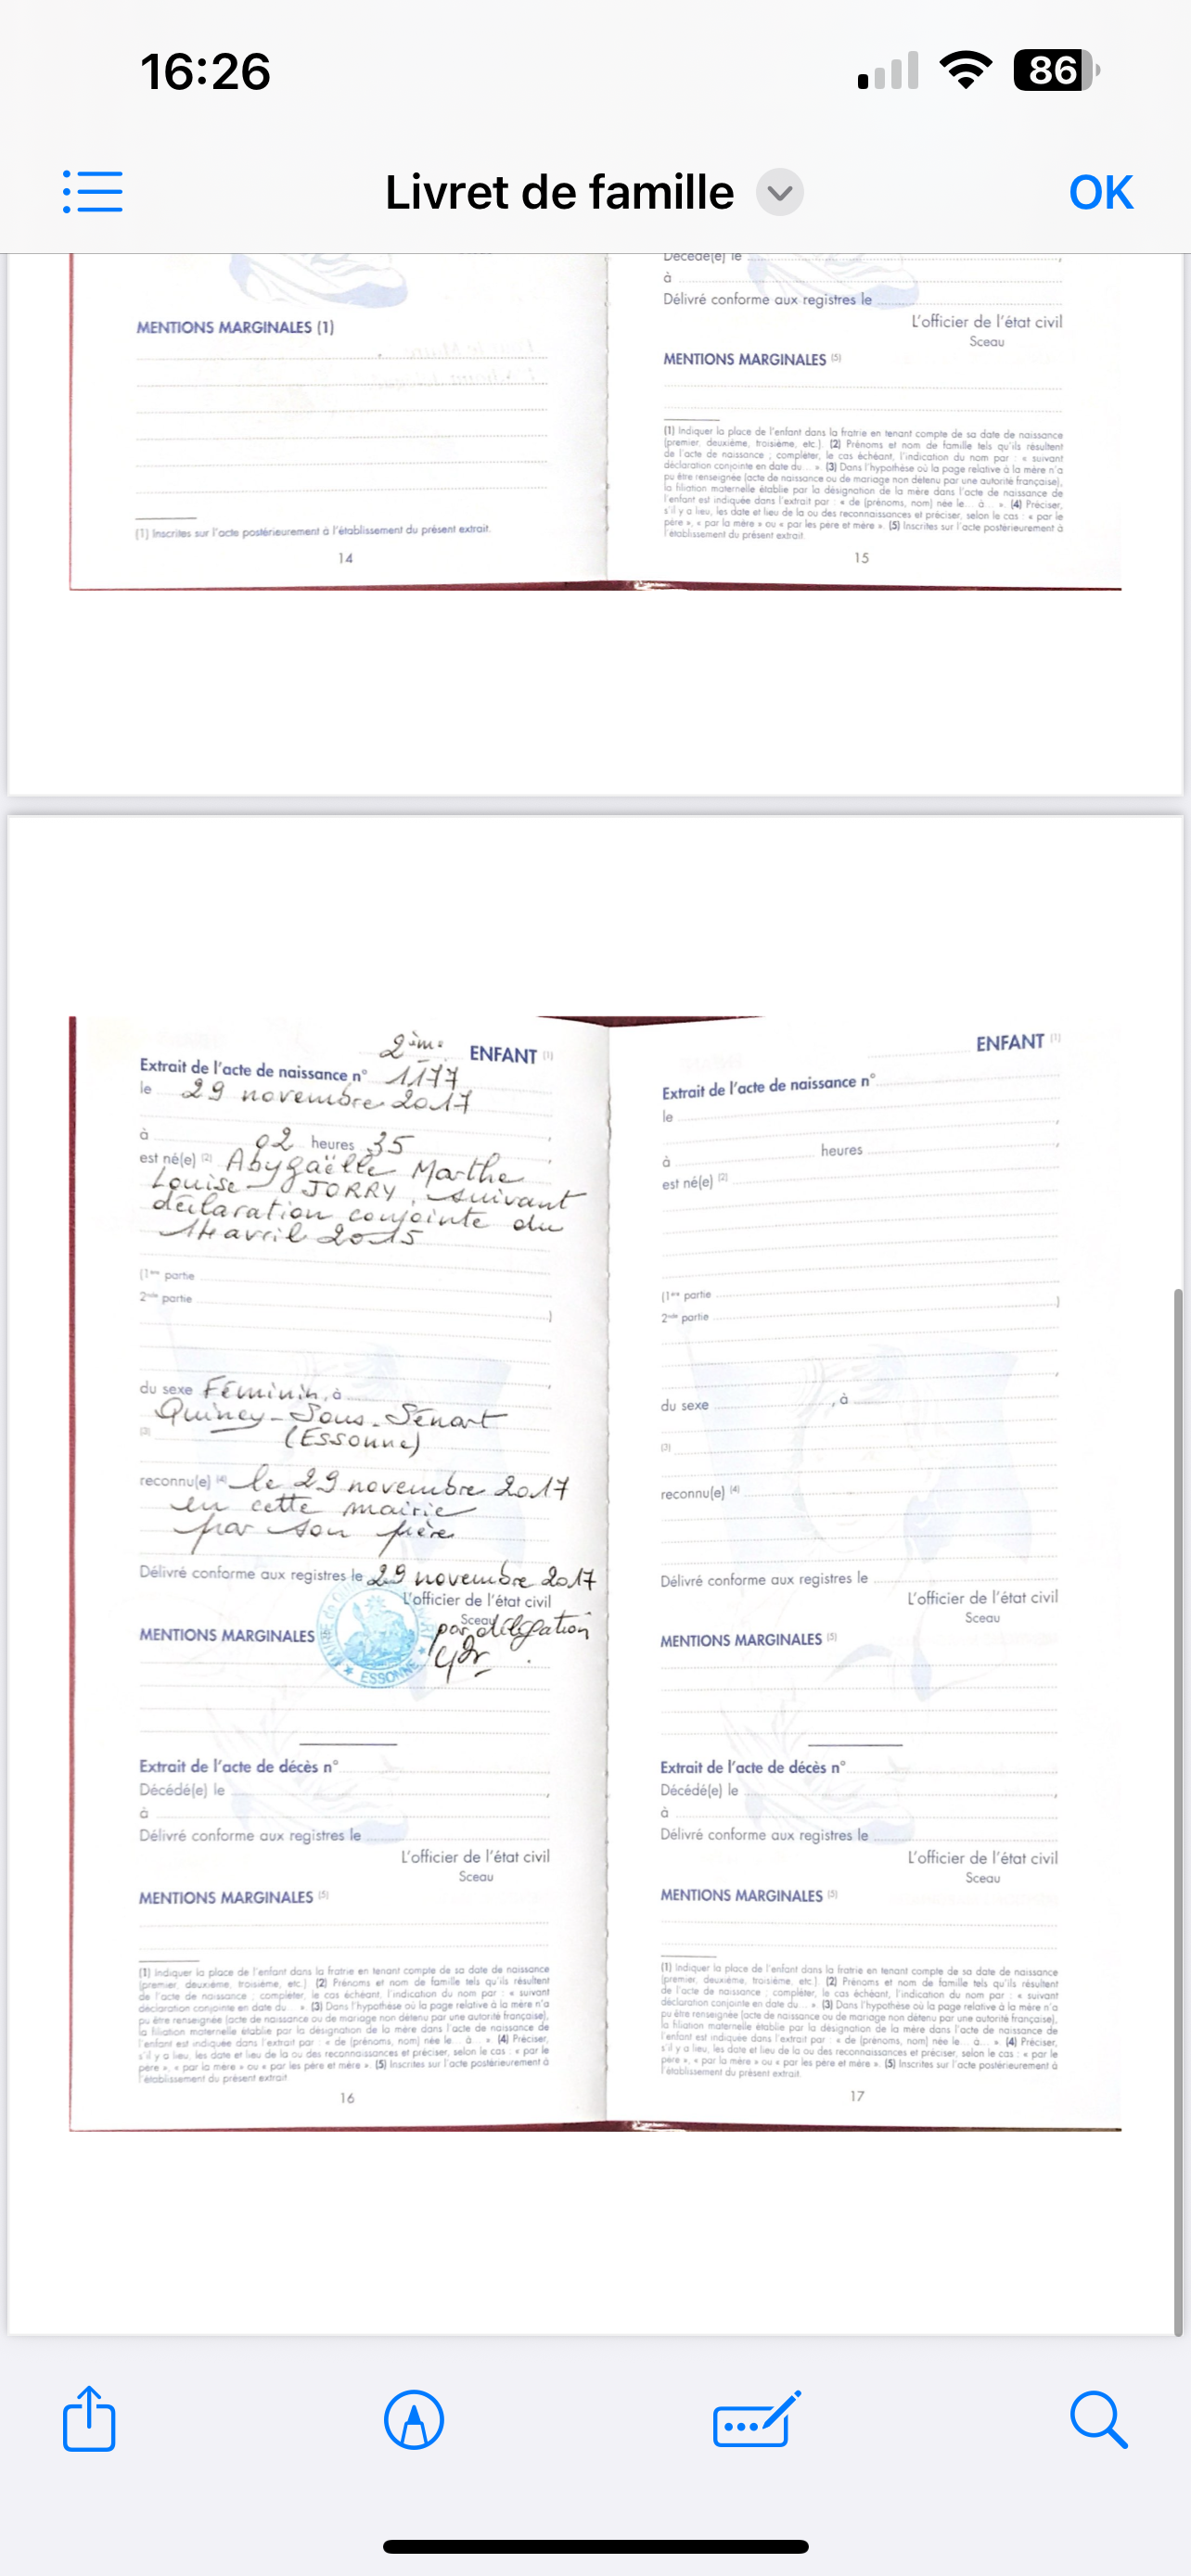 16:26
86
Livret de famille
OK
MENTIONS MARGINALES (1)
(1) Inscrites sur l'acte postérieurement à l'établissement du présent extrait.
14
Décédé(e) le
à
Délivré conforme aux registres le
L'officier de l'état civil
Sceau
MENTIONS MARGINALES (5)
(1) Indiquer la place de l'enfant dans la fratrie en tenant compte de sa date de naissance
(premier, deuxième, troisième, etc.). (2) Prénoms et nom de famille tels qu'ils résultent
de l'acte de naissance ; compléter, le cas échéant, l'indication du nom par : « suivant
déclaration conjointe en date du... ». (3) Dans l'hypothèse où la page relative à la mère n'a
pu être renseignée (acte de naissance ou de mariage non détenu par une autorité française),
la filiation maternelle établie par la désignation de la mère dans l'acte de naissance de
l'enfant est indiquée dans l'extrait par : « de (prénoms, nom) née le... à... ». (4) Préciser,
s'il y a lieu, les date et lieu de la ou des reconnaissances et préciser, selon le cas : « par le
père », « par la mère » ou « par les père et mère ». (5) Inscrites sur l'acte postérieurement à
l'établissement du présent extrait.
15
2ème ENFANT (1)
Extrait de l'acte de naissance n° 1177
le 29 novembre 2017
à 02 heures 35
est né(e) (2) Abygaëlle Marthe
Louise JORRY, suivant
déclaration conjointe du
14 avril 2015
(1ère partie
2nde partie )
du sexe Féminin, à
Quincy-Sous-Sénart
(3) (Essonne)
reconnu(e) (4) le 29 novembre 2017
en cette mairie
par son père
Délivré conforme aux registres le 29 novembre 2017
L'officier de l'état civil
Sceau
par délégation
MENTIONS MARGINALES
ESSONNE
Extrait de l'acte de décès n°
Décédé(e) le
à
Délivré conforme aux registres le
L'officier de l'état civil
Sceau
MENTIONS MARGINALES (5)
(1) Indiquer la place de l'enfant dans la fratrie en tenant compte de sa date de naissance
(premier, deuxième, troisième, etc.). (2) Prénoms et nom de famille tels qu'ils résultent
de l'acte de naissance ; compléter, le cas échéant, l'indication du nom par : « suivant
déclaration conjointe en date du... ». (3) Dans l'hypothèse où la page relative à la mère n'a
pu être renseignée (acte de naissance ou de mariage non détenu par une autorité française),
la filiation maternelle établie par la désignation de la mère dans l'acte de naissance de
l'enfant est indiquée dans l'extrait par : « de (prénoms, nom) née le... à... ». (4) Préciser,
s'il y a lieu, les date et lieu de la ou des reconnaissances et préciser, selon le cas : « par le
père », « par la mère » ou « par les père et mère ». (5) Inscrites sur l'acte postérieurement à
l'établissement du présent extrait
16
ENFANT (1)
Extrait de l'acte de naissance n°
le
à heures
est né(e) (2)
(1ère partie
2nde partie )
du sexe , à
(3)
reconnu(e) (4)
Délivré conforme aux registres le
L'officier de l'état civil
Sceau
MENTIONS MARGINALES (5)
Extrait de l'acte de décès n°
Décédé(e) le
à
Délivré conforme aux registres le
L'officier de l'état civil
Sceau
MENTIONS MARGINALES (5)
(1) Indiquer la place de l'enfant dans la fratrie en tenant compte de sa date de naissance
(premier, deuxième, troisième, etc.). (2) Prénoms et nom de famille tels qu'ils résultent
de l'acte de naissance ; compléter, le cas échéant, l'indication du nom par : « suivant
déclaration conjointe en date du... ». (3) Dans l'hypothèse où la page relative à la mère n'a
pu être renseignée (acte de naissance ou de mariage non détenu par une autorité française),
la filiation maternelle établie par la désignation de la mère dans l'acte de naissance de
l'enfant est indiquée dans l'extrait par : « de (prénoms, nom) née le... à... ». (4) Préciser,
s'il y a lieu, les date et lieu de la ou des reconnaissances et préciser, selon le cas : « par le
père », « par la mère » ou « par les père et mère ». (5) Inscrites sur l'acte postérieurement à
l'établissement du présent extrait.
17